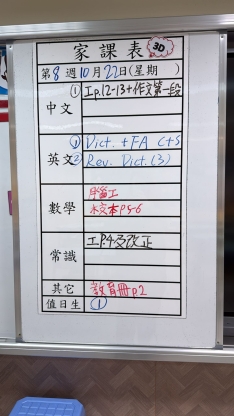 家課表 3D
第 8 週 10 月 22 日(星期 )
中文
① 工p.12-13+作文第一段
英文
① Dict. + FA C+S
② Rev. Dict.(3)
數學
水文本P5-6
常識
工P.4及改正
其它
教育冊p.2
值日生
①